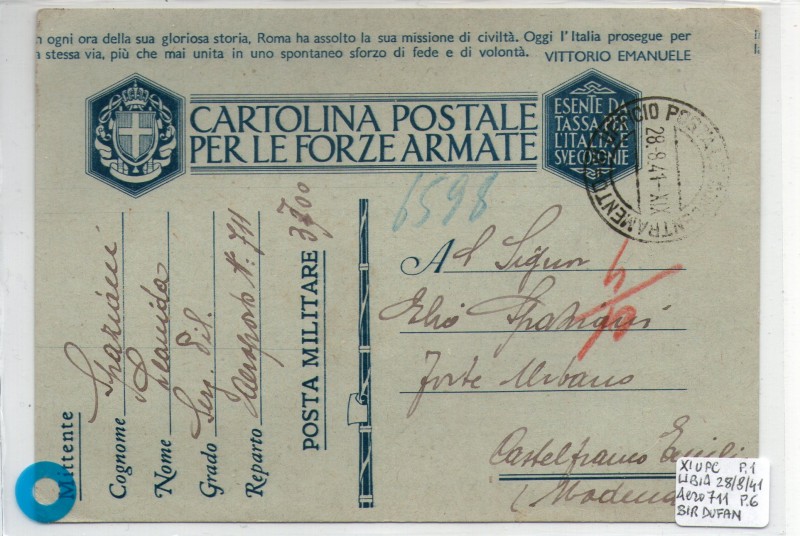 n ogni ora della sua gloriosa storia, Roma ha assolto la sua missione di civiltà. Oggi l'Italia prosegue per
a stessa via, più che mai unita in uno spontaneo sforzo di fede e di volontà. VITTORIO EMANUELE
in
la
CARTOLINA POSTALE
PER LE FORZE ARMATE
ESENTE DA
TASSA PER
L'ITALIA E
SVE COLONIE
28-8-41-XIX
6598
Mittente
Cognome Spaziani
Nome
Grado Serg. Pil.
Reparto Aeroporto N. 711
POSTA MILITARE 3700
Al Signor
Elio Spaziani
Forte Urbano
Castelfranco Emili
(Modena
XI UPC P.1
LIBIA 28/8/41
Aero 711 P.6
BIR DUFAN